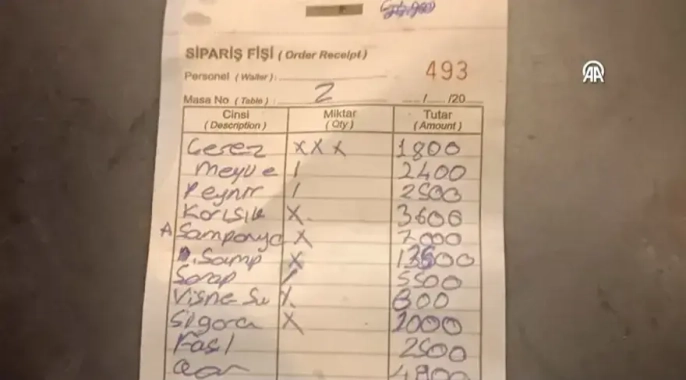 SİPARİŞ FİŞİ (Order Receipt)
Personel (Waiter):
493
Masa No (Table): 2 ..../..../20....
Cinsi (Description) Miktar (Qty) Tutar (Amount)
Cerez XXX 1800
Meyve / 2400
Peynir / 2500
Karışık X. 3600
A Sampanya X 7000
D. Samp X
Sarap / 5500
Visne Su 800
Sigara X 2000
Fasl 2500
4800
AA